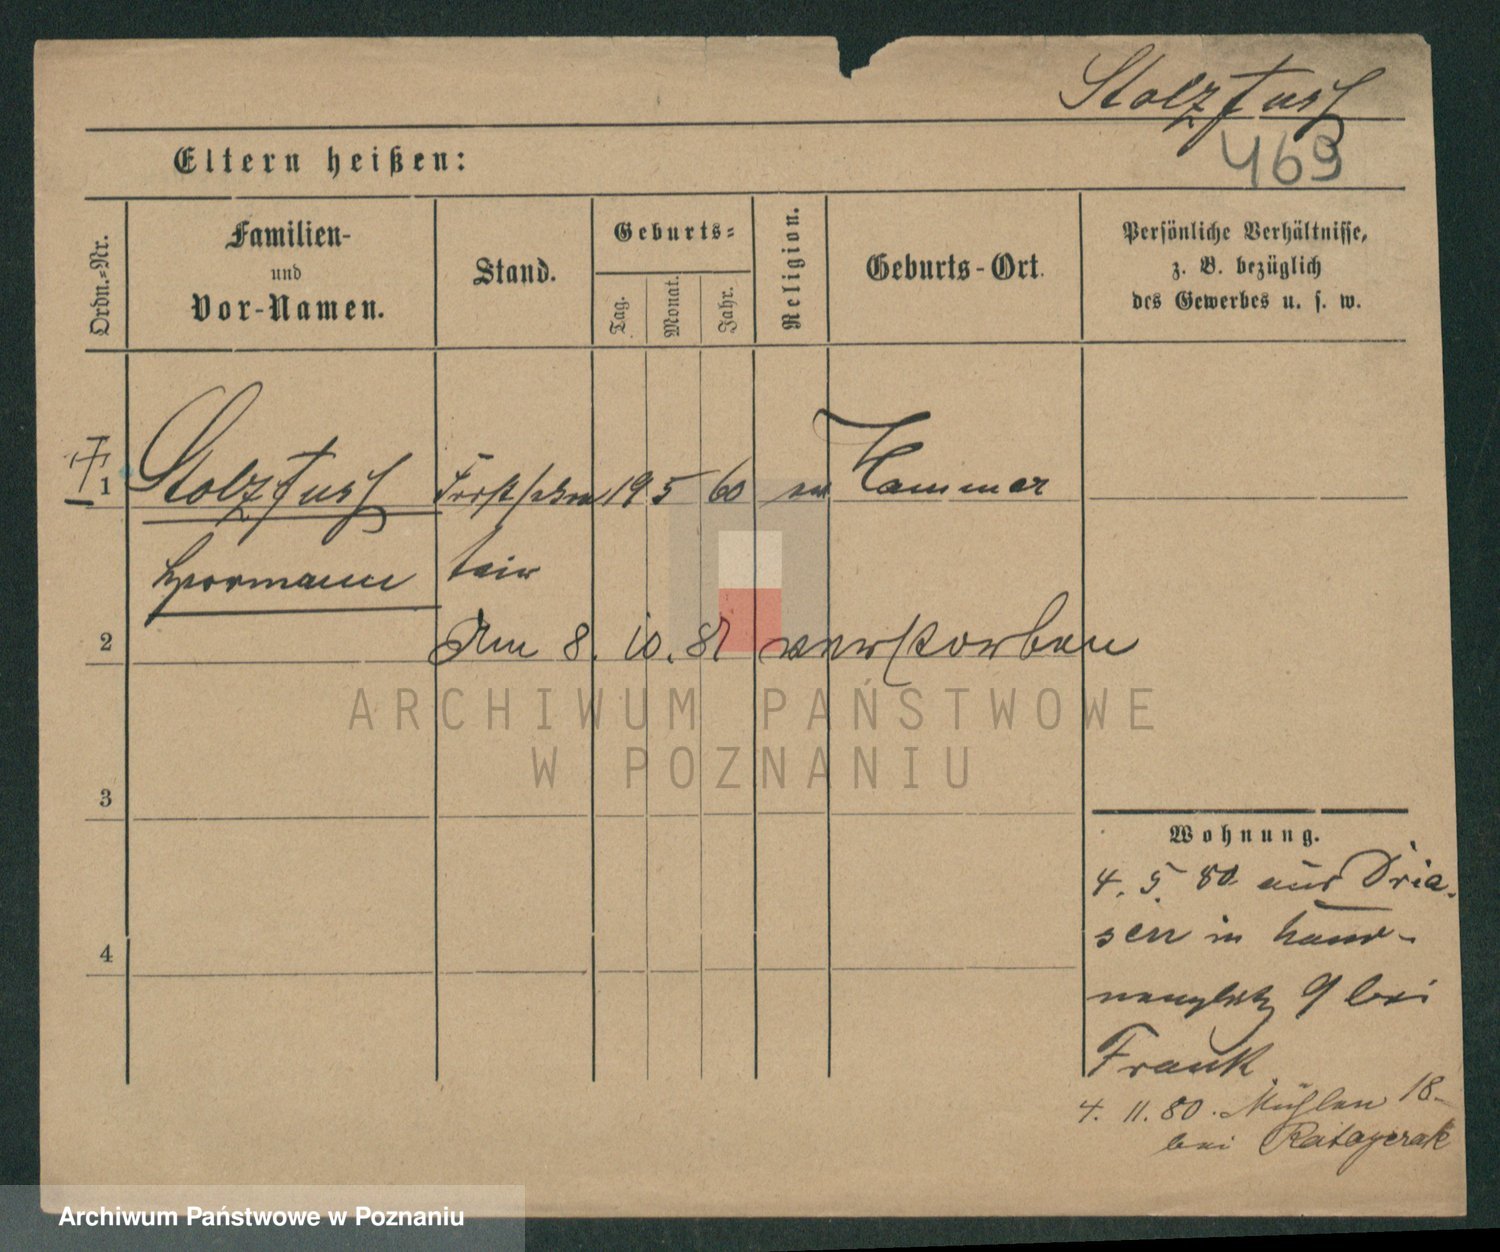 Stolzfuß
469
Eltern heißen:
Ordn.-Nr.
Familien-
und
Vor-Namen.
Stand.
Geburts-
Tag.
Monat.
Jahr.
Religion.
Geburts-Ort.
Persönliche Verhältnisse,
z. B. bezüglich
des Gewerbes u. s. w.
1 Stolzfuß 19 5 60 ev Hammer
Hermann
2 Am 8. 10. 81 verstorben
ARCHIWUM PAŃSTWOWE
W POZNANIU
3
Wohnung.
4. 5. 80 aus Drie-
sen in
4
9 bei
Frank
4. 11. 80. Mühlen 18
bei Ratayczak
Archiwum Państwowe w Poznaniu